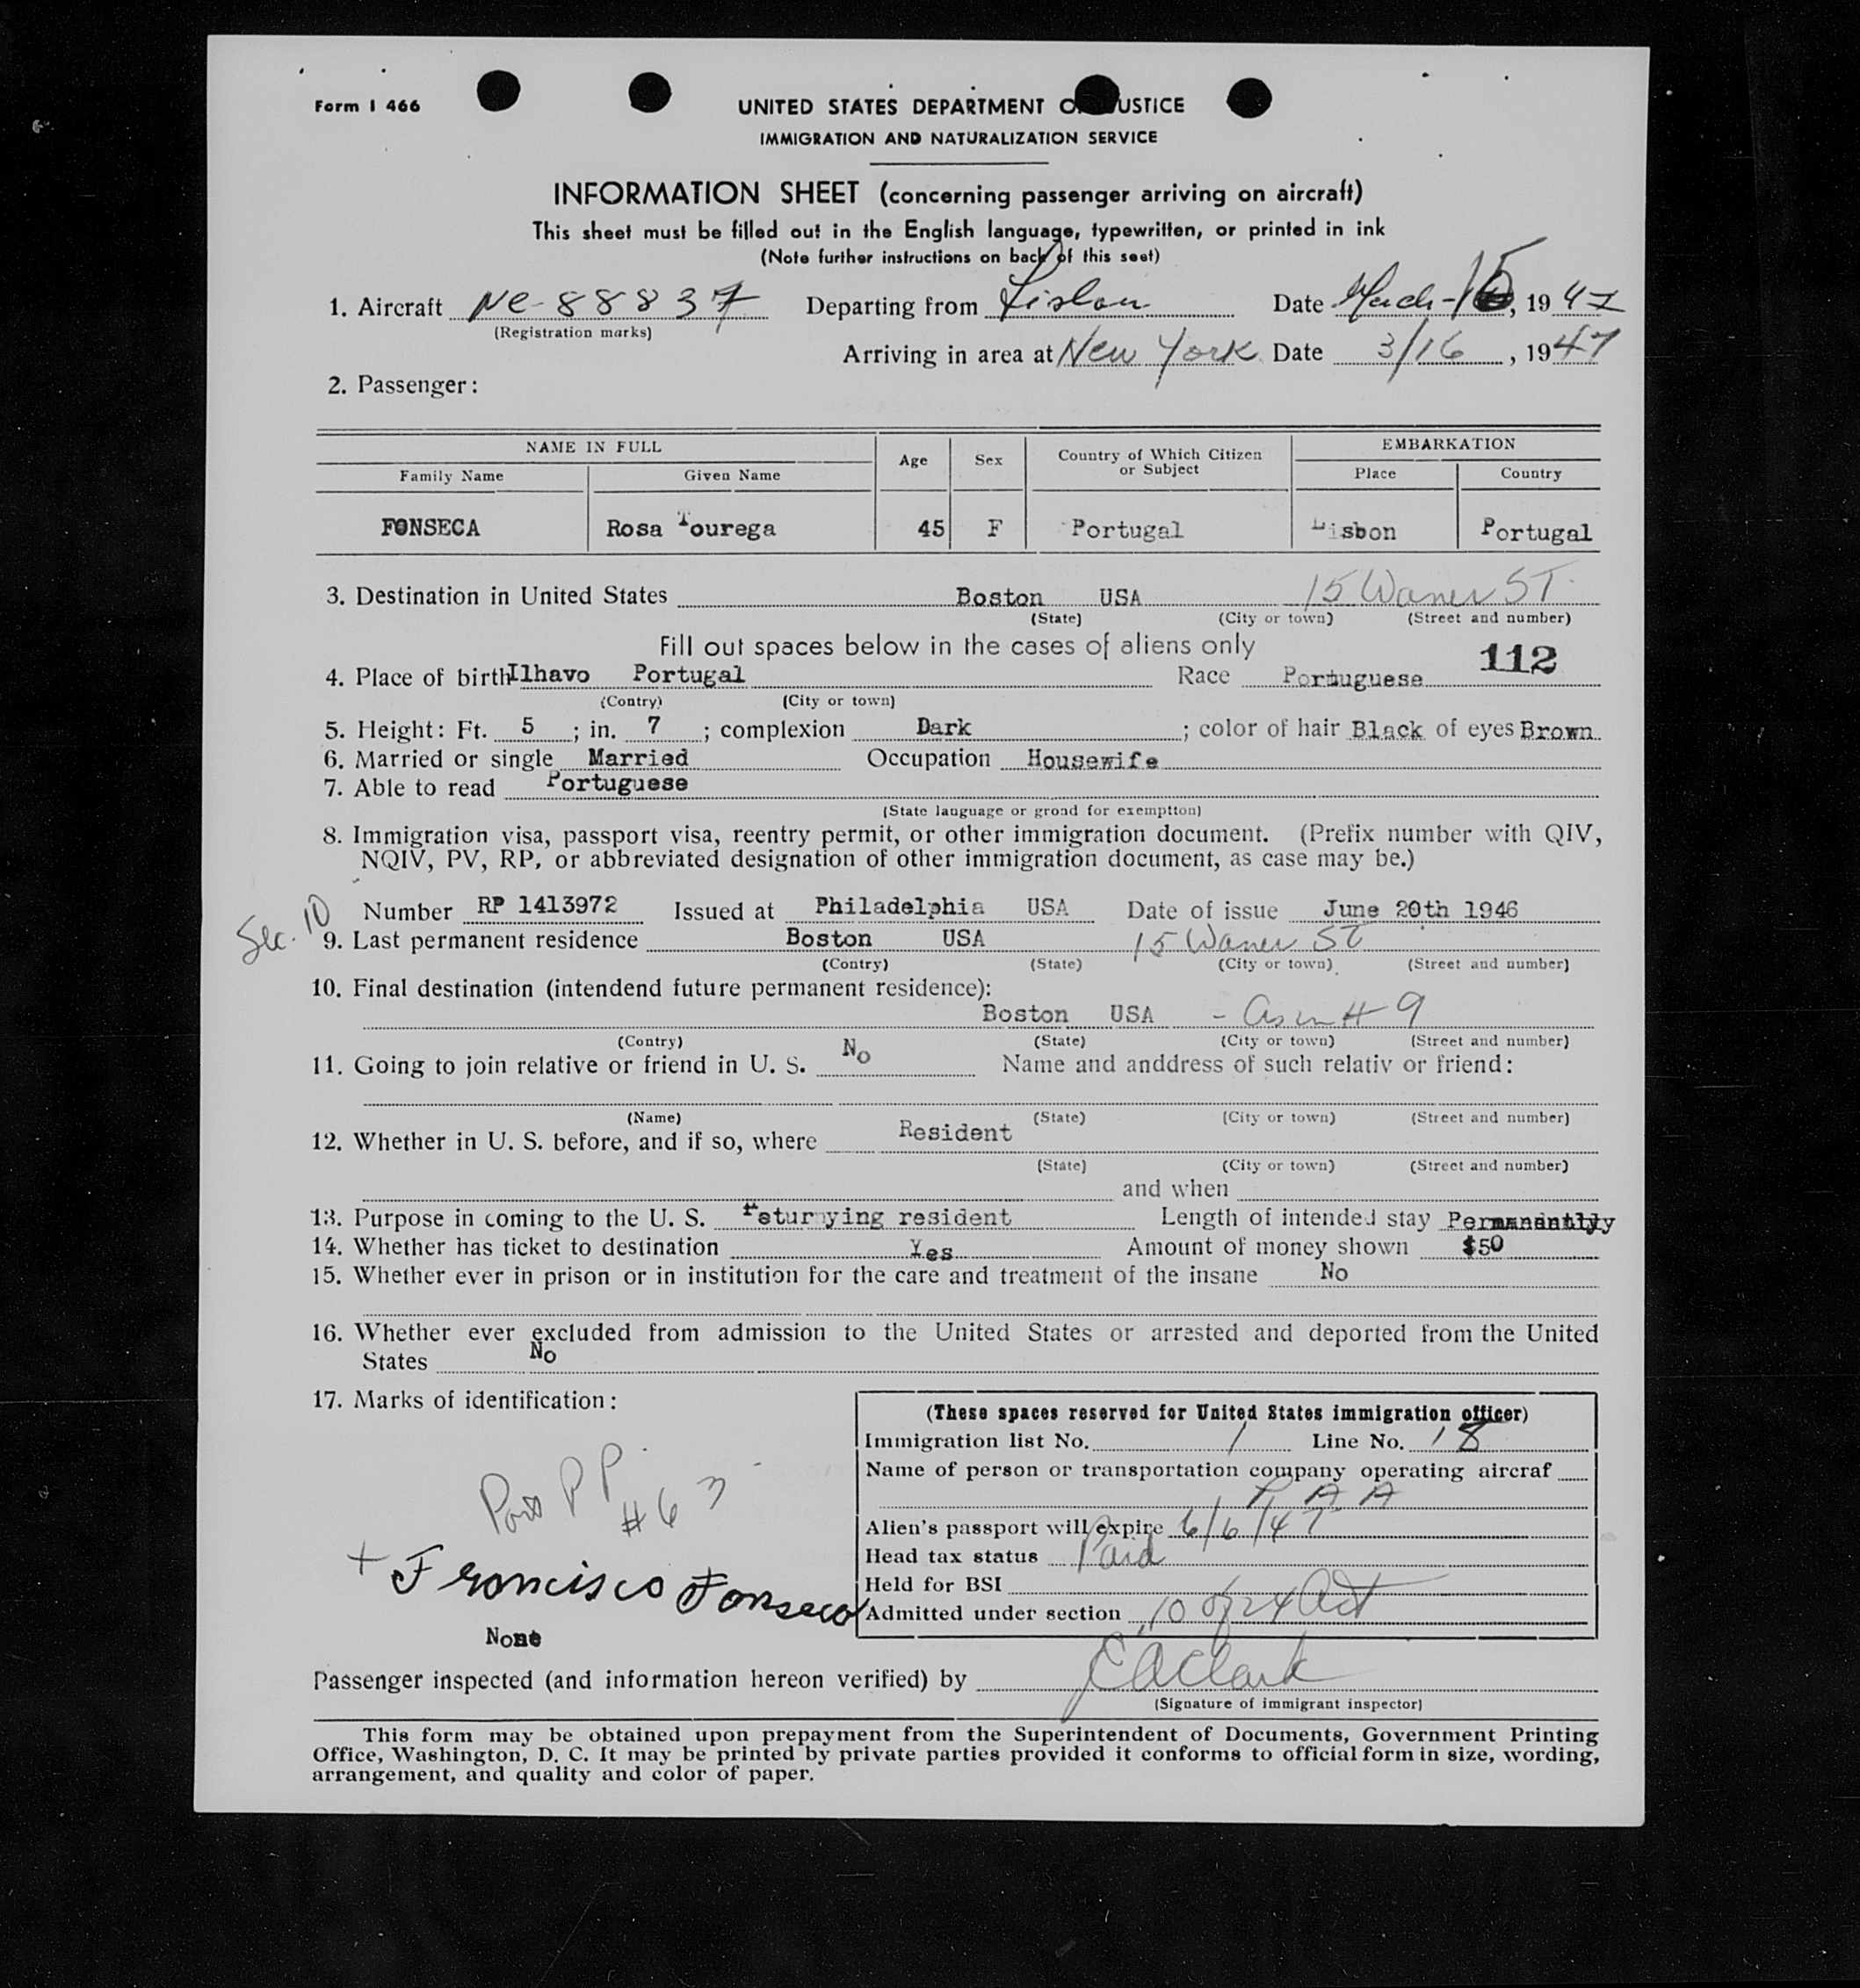 Form I 466
UNITED STATES DEPARTMENT O USTICE
IMMIGRATION AND NATURALIZATION SERVICE
INFORMATION SHEET (concerning passenger arriving on aircraft)
This sheet must be filled out in the English language, typewritten, or printed in ink
(Note further instructions on back of this seet)
1. Aircraft NC-88837 Departing from Lisbon Date March-15, 1947
(Registration marks)
Arriving in area at New York Date 3/16, 1947
2. Passenger:
NAME IN FULL Age Sex Country of Which Citizen or Subject EMBARKATION
Family Name Given Name Place Country
FONSECA Rosa Tourega 45 F Portugal Lisbon Portugal
3. Destination in United States Boston USA 15 ST.
(State) (City or town) (Street and number)
Fill out spaces below in the cases of aliens only 112
4. Place of birth Ilhavo Portugal Race Portuguese
(Contry) (City or town)
5. Height: Ft. 5; in. 7; complexion Dark; color of hair Black of eyes Brown
6. Married or single Married Occupation Housewife
7. Able to read Portuguese
(State language or groad for exemptton)
8. Immigration visa, passport visa, reentry permit, or other immigration document. (Prefix number with QIV,
NQIV, PV, RP, or abbreviated designation of other immigration document, as case may be.)
Sec. 10
Number RP 1413972 Issued at Philadelphia USA Date of issue June 20th 1946
9. Last permanent residence Boston USA 15 ST
(Contry) (State) (City or town) (Street and number)
10. Final destination (intendend future permanent residence):
Boston USA - as in # 9
(Contry) (State) (City or town) (Street and number)
11. Going to join relative or friend in U. S. No Name and anddress of such relativ or friend:
(Name) (State) (City or town) (Street and number)
12. Whether in U. S. before, and if so, where Resident
(State) (City or town) (Street and number)
and when
13. Purpose in coming to the U. S. resident Length of intended stay
14. Whether has ticket to destination Yes Amount of money shown $50
15. Whether ever in prison or in institution for the care and treatment of the insane No
16. Whether ever excluded from admission to the United States or arrested and deported from the United
States No
17. Marks of identification:
(These spaces reserved for United States immigration officer)
Immigration list No. 1 Line No. 18
Name of person or transportation company operating aircraf
P A A
Port PP #63
Alien's passport will expire 6/6/47
Head tax status Paid
+ Francisco Fonseca
Held for BSI
Admitted under section 10 of 24 Act
None
Passenger inspected (and information hereon verified) by E A Clark
(Signature of immigrant inspector)
This form may be obtained upon prepayment from the Superintendent of Documents, Government Printing
Office, Washington, D. C. It may be printed by private parties provided it conforms to official form in size, wording,
arrangement, and quality and color of paper.